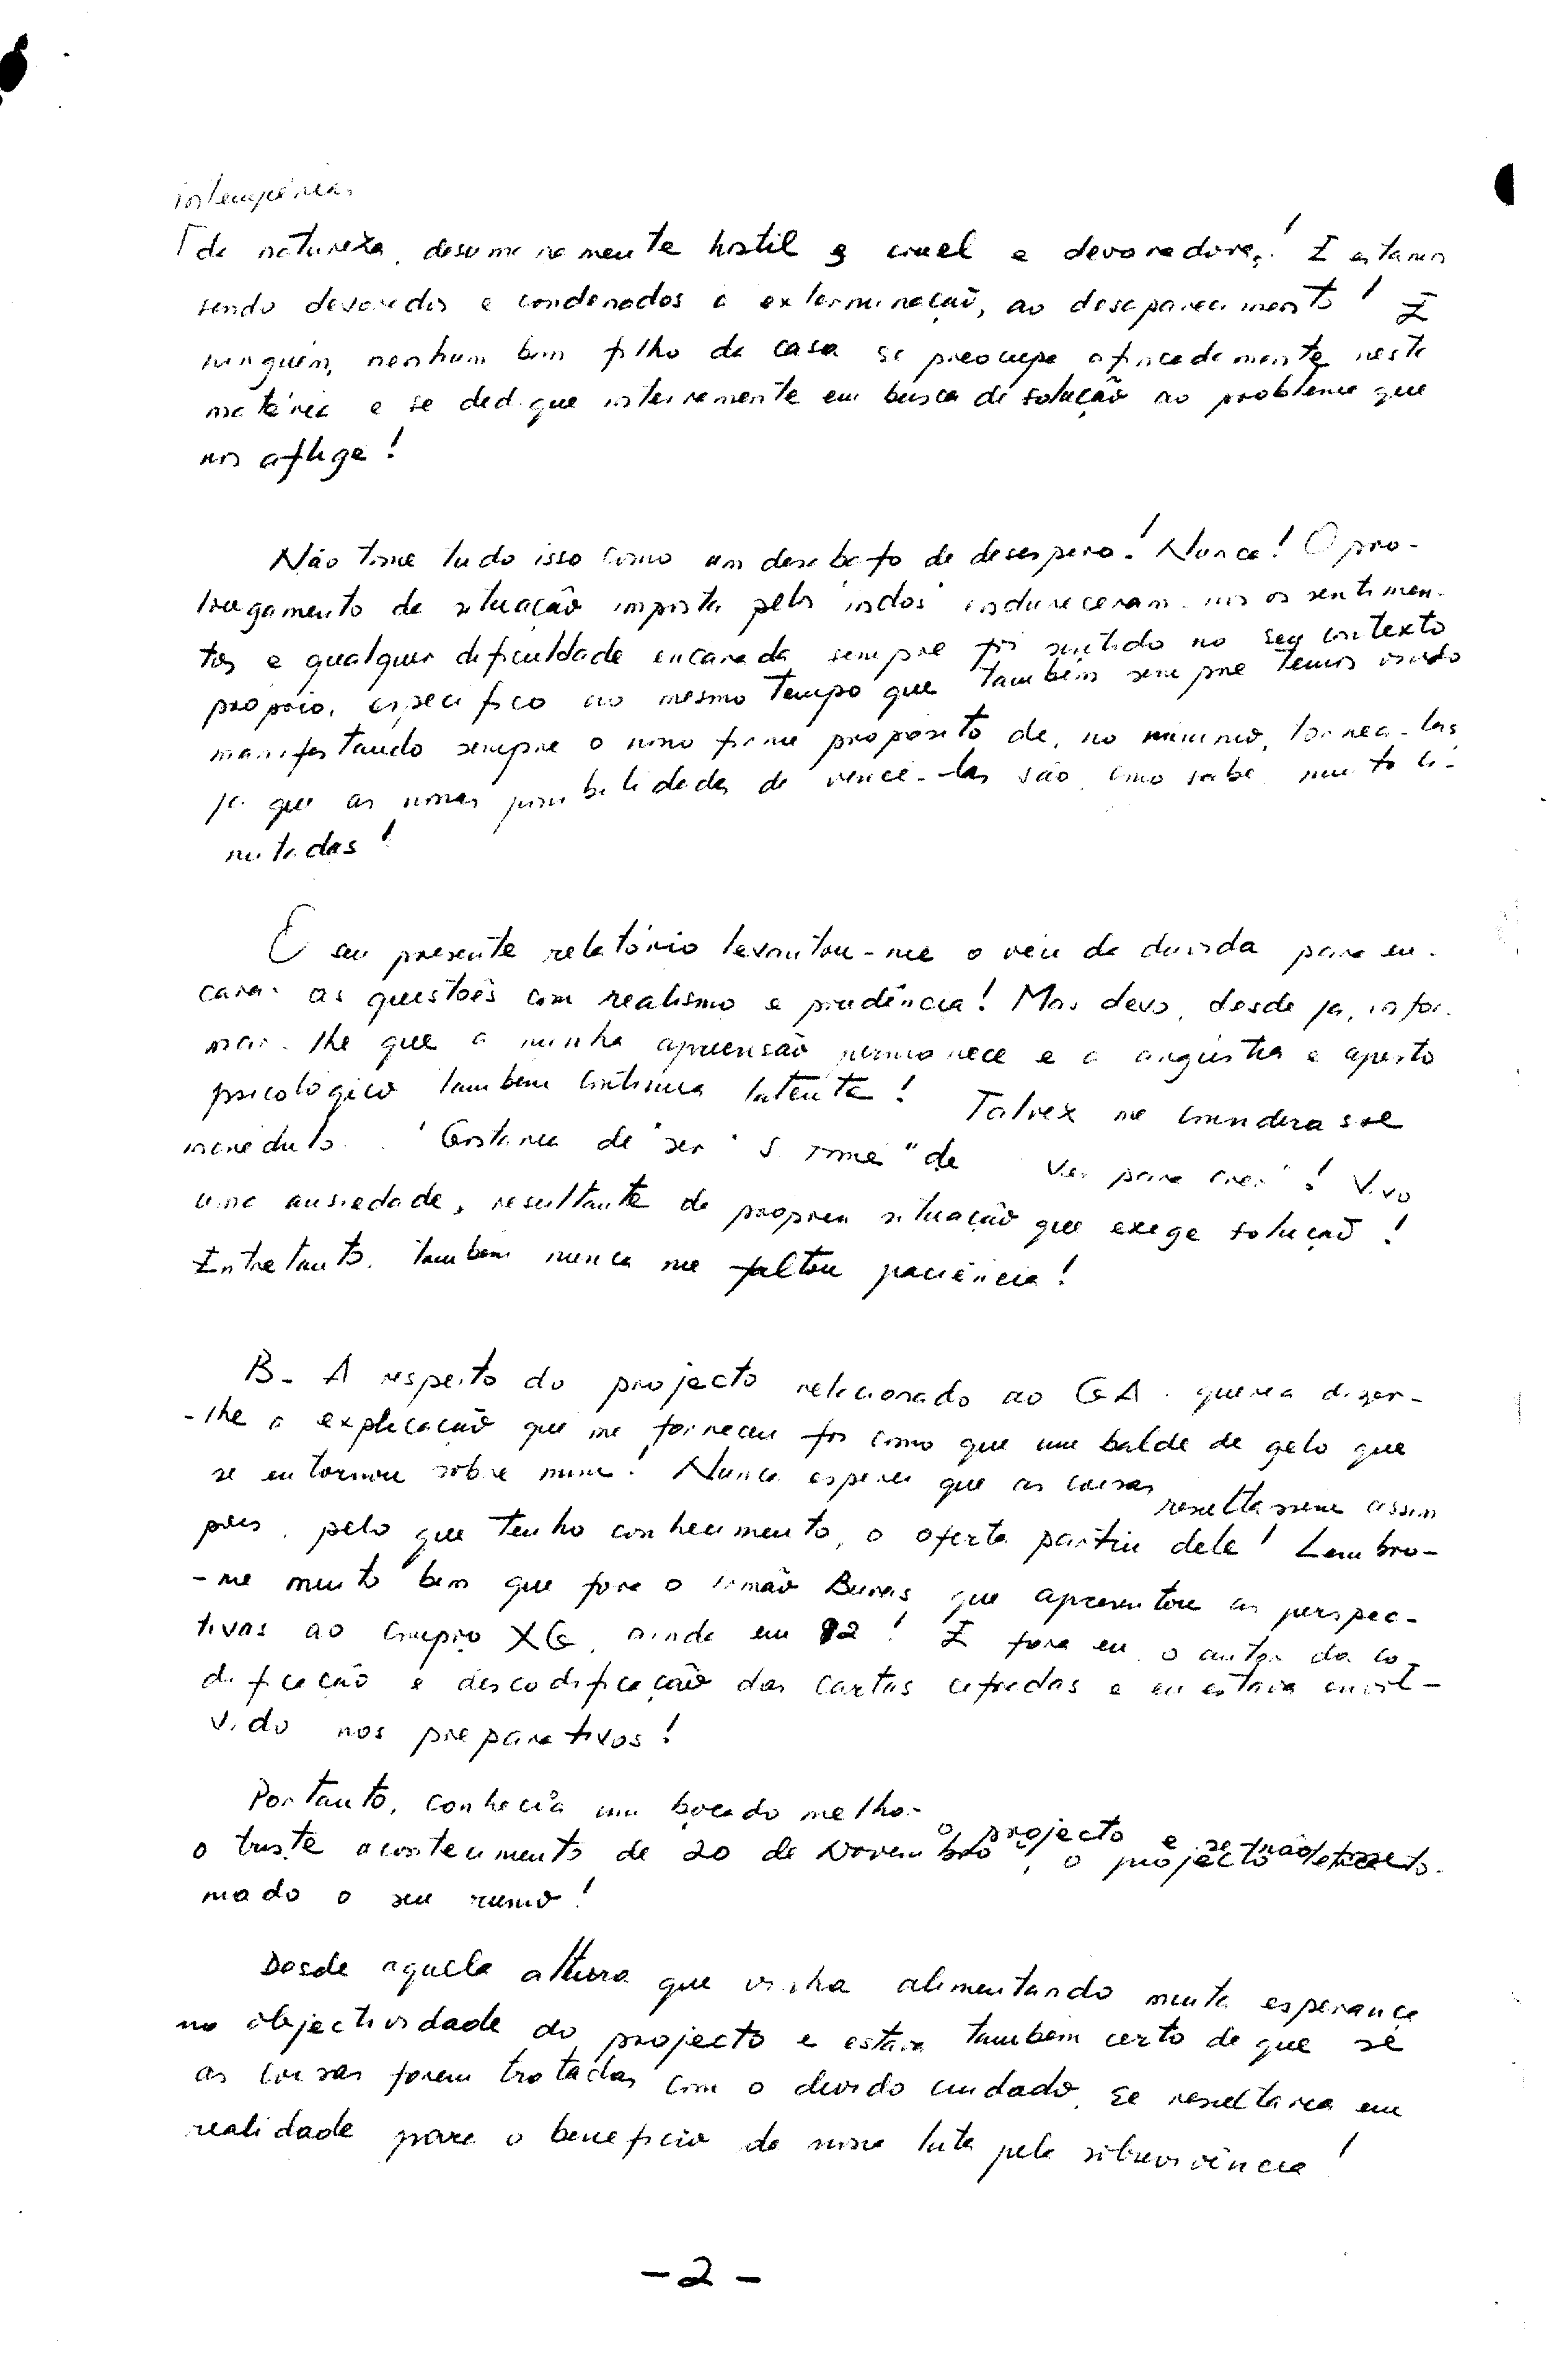 intempéries
da natureza, desumanamente hostil e cruel e devoradora! E estamos
sendo devorados e condenados a exterminação, ao desaparecimento! E
ninguém, nenhum bom filho da casa se preocupa afincadamente nesta
matéria e se dedique inteiramente em busca de solução ao problema que
nos aflige!
Não tome tudo isso como um desabafo de desespero! Nunca! O pro-
longamento da situação imposta pelos indos endureceram-nos os sentimen-
tos e qualquer dificuldade encarada sempre foi sentido no seu contexto
próprio, específico ao mesmo tempo que também sempre temos
manifestando sempre o nosso firme propósito de, no mínimo, tornea-las
já que as nossas possibilidades de vencê-las são, como sabe, muito li-
mitadas!
E seu presente relatório levantou-me o véu da dúvida para en-
carar as questões com realismo e prudência! Mas devo, desde já, infor-
mar-lhe que a minha apreensão permanece e a angústia e aperto
psicológico também continua latente! Talvez me considerasse
incrédulo. Gostaria de ser "S. Tomé" de "ver para crer"! Vivo
uma ansiedade, resultante da própria situação que exige solução!
Entretanto, também nunca me faltou paciência!
B- A respeito do projecto relacionado ao GA. queria dizer-
-lhe a explicação que me forneceu foi como que um balde de gelo que
se entornou sobre mim! Nunca esperei que as coisas resultassem assim
pois, pelo que tenho conhecimento, a oferta partiu dele! Lembro-
-me muito bem que fora o irmão que apresentou as perspec-
tivas ao grupo XG, ainda em 92! E fora eu, o autor da co-
dificação e descodificação das cartas cifradas e eu estava envol-
vido nos preparativos!
Portanto, conhecia um bocado melhor o projecto e se não
o triste acontecimento de 20 de Novembro, o projecto to-
mado o seu rumo!
Desde aquela altura que vinha alimentando muita esperança
na objectividade do projecto e estava também certo de que se
as coisas forem tratadas com o devido cuidado, se resultaria em
realidade para o benefício da nossa luta pela sobrevivência!
-2-